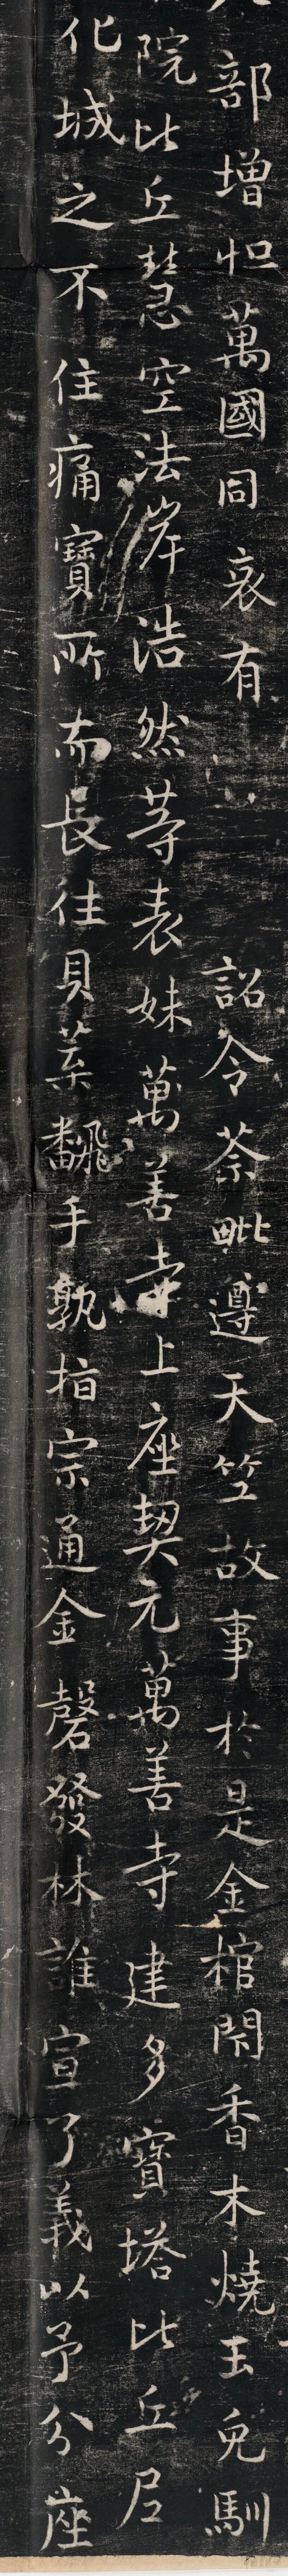 部增怛萬國同哀有詔令荼毗遵天竺故事於是金棺閇香木燒玉皃馴
院比丘慧空法岸浩然䓁表妹萬善寺上座契元萬善寺建多寶塔比丘尼
化城之不住痛寶所而長往貝葉翻手孰指宗通金磬發林誰宣了義以予分座